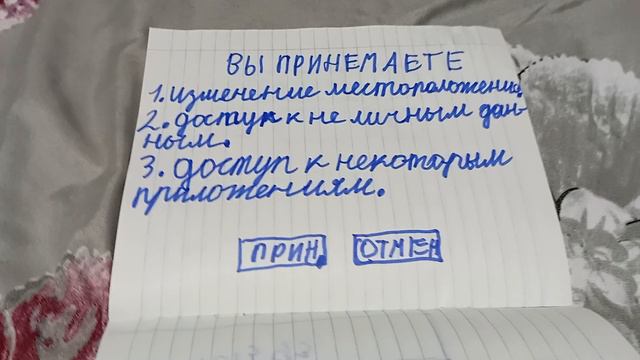 ВЫ ПРИНЕМАЕТЕ
1. изменение местоположения.
2. доступ к не личным дан-
ным.
3. доступ к некоторым
приложениям.
ПРИН. ОТМЕН